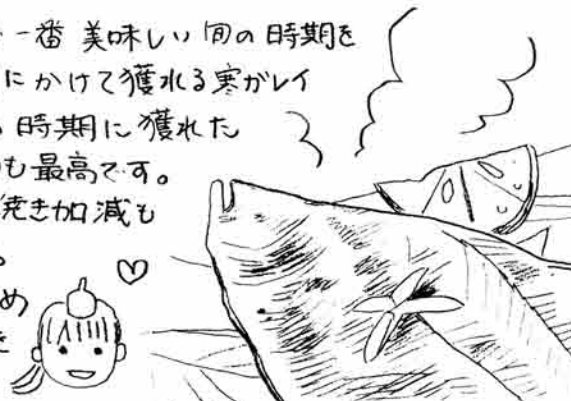 一番 美味しい 旬の 時期を
にかけて獲れる寒がレイ
時期に獲れた
も 最高です。
焼き加減も
め